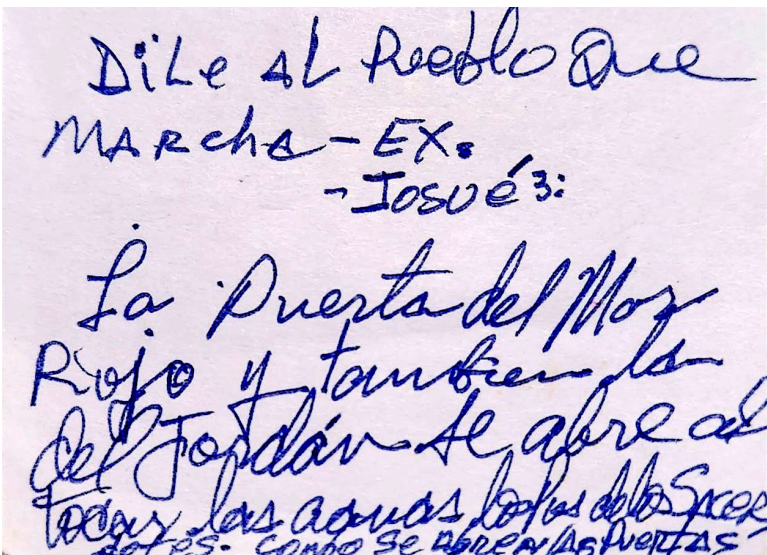 DiLe AL Pueblo Que
MARcha - EX.
- Josué 3:
La Puerta del Mar
Rojo y tambien la
del Jordán se abre al
tocar las aguas los pies de los Sacer
dotes. Como se abren las Puertas